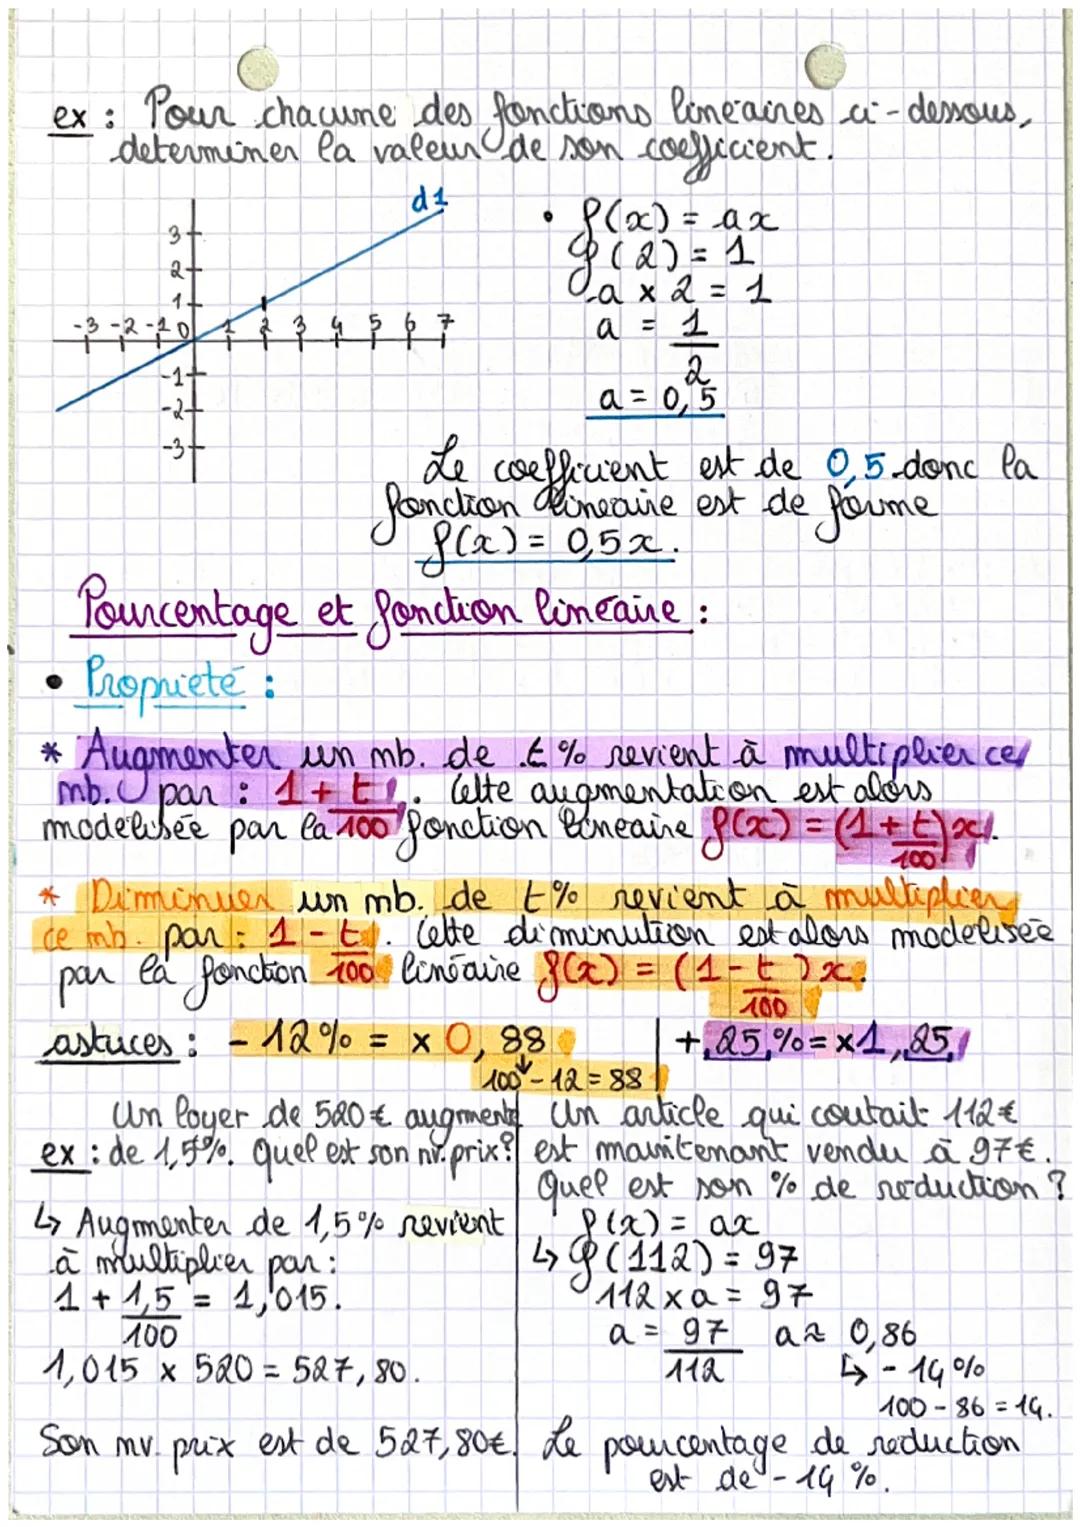 ex : Pour chacune des fonctions linéaires ci-dessous,
determiner la valeur de son coefficient.
d1
3
2
1
-3 -2 -1 0 1 2 3 4 5 6 7
-1
-2
-3
• f(x) = ax
f(2) = 1
a x 2 = 1
a = 1/2
a = 0,5
Le coefficient est de 0,5 donc la
fonction lineaire est de forme
f(x) = 0,5x.
Pourcentage et fonction linéaire :
• Propriété :
* Augmenter un mb. de t% revient à multiplier ce
mb. par : 1 + t/100. Cette augmentation est alors
modélisée par la fonction lineaire f(x) = (1 + t/100)x.
* Diminuer un mb. de t% revient à multiplier
ce mb. par : 1 - t/100. Cette diminution est alors modelisée
par la fonction linéaire f(x) = (1 - t/100)x.
astuces : - 12% = x 0,88
100 - 12 = 88
+ 25% = x1,25
Un loyer de 520€ augmente
ex : de 1,5%. Quel est son nv. prix?
↳ Augmenter de 1,5% revient
à multiplier par :
1 + 1,5/100 = 1,015.
1,015 x 520 = 527,80.
Son nv. prix est de 527,80€.
Un article qui coutait 112€
est maintenant vendu à 97€.
Quel est son % de réduction ?
f(x) = ax
↳ f(112) = 97
112 x a = 97
a = 97/112 a ≈ 0,86
↳ - 14%
100 - 86 = 14.
Le pourcentage de reduction
est de - 14%.